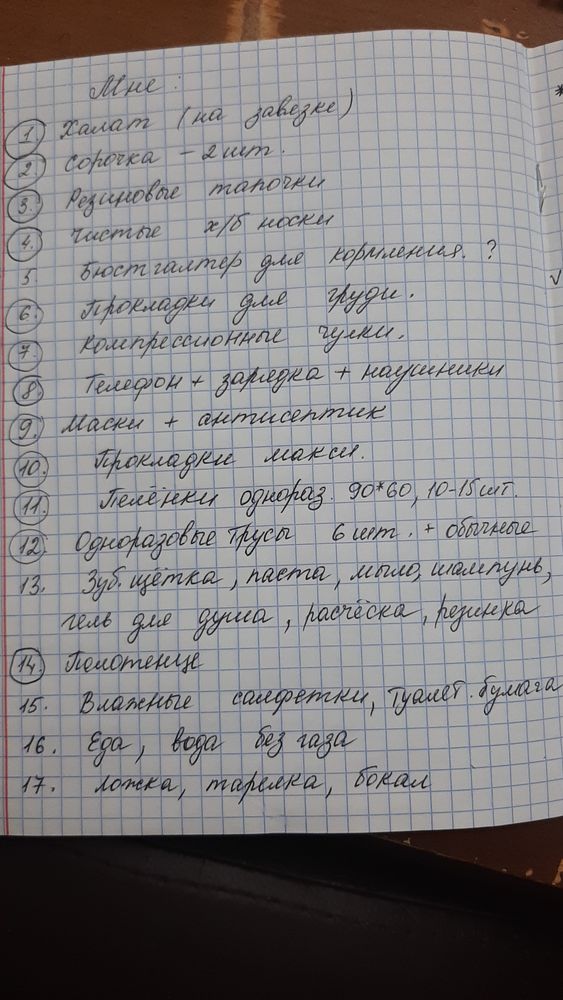 Мне:
1. Халат (на завязке)
2. Сорочка - 2 шт.
3. Резиновые тапочки
4. Чистые х/б носки
5. Бюстгалтер для кормления. ?
6. Прокладки для груди.
7. Компрессионные чулки.
8. Телефон + зарядка + наушники
9. Маски + антисептик
10. Прокладки макси.
11. Пелёнки однораз. 90*60, 10-15 шт.
12. Одноразовые трусы 6 шт. + обычные
13. Зуб. щётка, паста, мыло, шампунь,
гель для душа, расчёска, резинка
14. Полотенце
15. Влажные салфетки, туалет. бумага
16. Еда, вода без газа
17. Ложка, тарелка, бокал